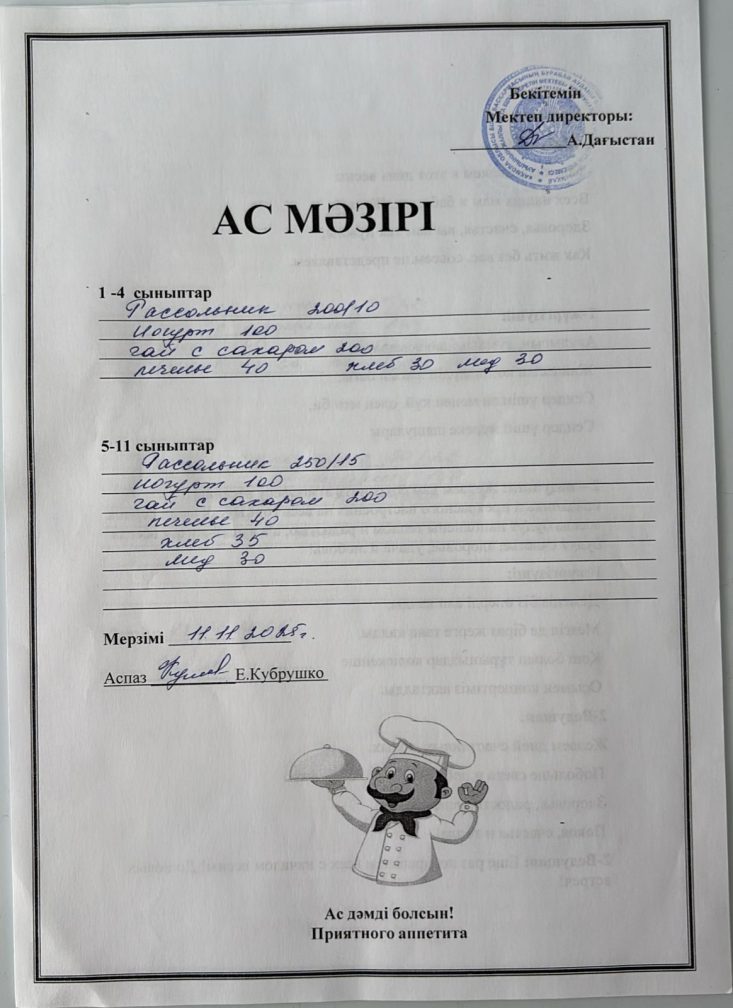 Бекітемін
Мектеп директоры:
А.Дағыстан
АС МӘЗІРІ
1 -4 сыныптар
Рассольник 200/10
Йогурт 100
чай с сахаром 200
печенье 40 хлеб 30 мед 30
5-11 сыныптар
Рассольник 250/15
йогурт 100
чай с сахаром 200
печенье 40
хлеб 35
мед 30
Мерзімі 11.11 2025 г.
Аспаз Е.Кубрушко
Ас дәмді болсын!
Приятного аппетита